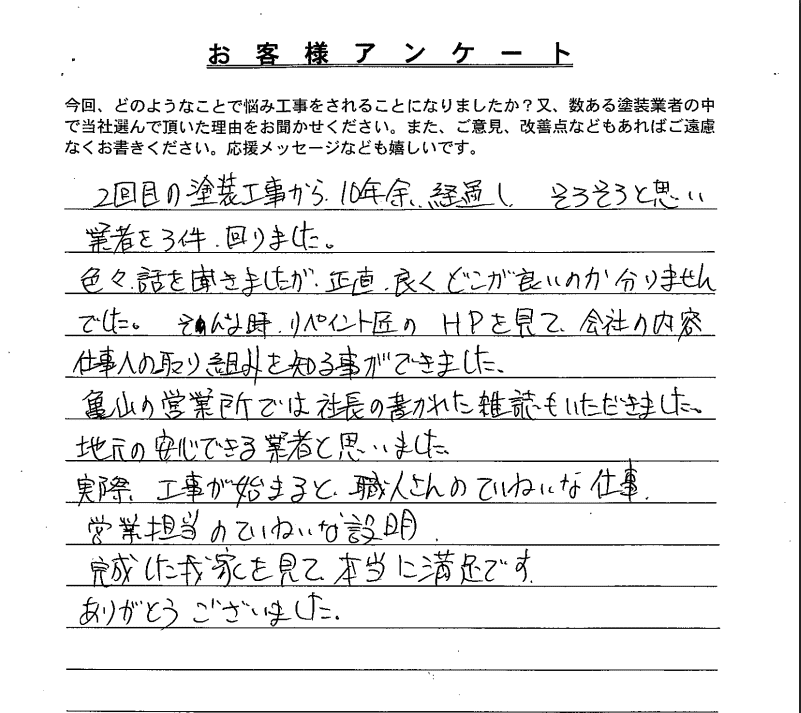 お客様アンケート
今回、どのようなことで悩み工事をされることになりましたか？又、数ある塗装業者の中
で当社選んで頂いた理由をお聞かせください。また、ご意見、改善点などもあればご遠慮
なくお書きください。応援メッセージなども嬉しいです。
2回目の塗装工事から、10年余、経過し そろそろと思い
業者を3件、回りました。
色々、話を聞きましたが、正直、良くどこが良いのか分りません
でした。そんな時、リペイント匠の HPを見て、会社の内容
仕事人の取り組みを知る事ができました、
亀山の営業所では社長の書かれた雑誌もいただきました。
地元の安心できる業者と思いました
実際、工事が始まると、職人さんのていねいな仕事、
営業担当のていねいな設明、
完成した我家を見て、本当に満足です。
ありがとうございました。